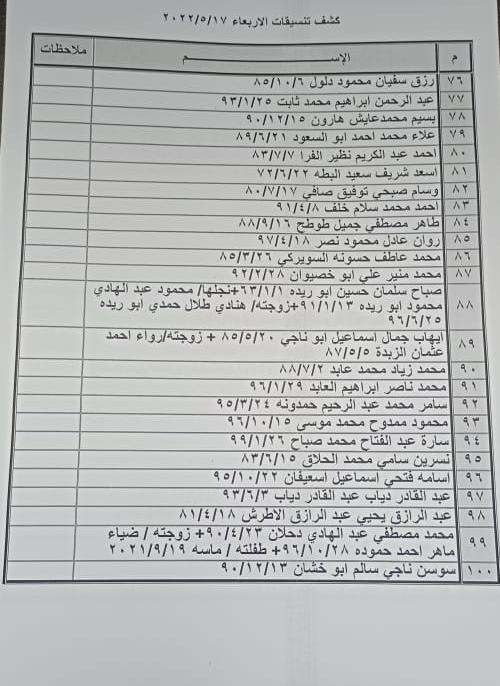 كشف تنسيقات الاربعاء ٢٠٢٢/٥/١٧
م الإســـــــــــم ملاحظات
٧٦ رزق سفيان محمود دلول ٨٥/١٠/٦
٧٧ عبد الرحمن ابراهيم محمد ثابت ٩٣/١/٢٥
٧٨ بسيم محمدعايش هارون ٩٠/١٢/١٥
٧٩ علاء محمد احمد ابو السعود ٨٩/٦/٢١
٨٠ احمد عبد الكريم نظير الفرا ٨٣/٧/٧
٨١ اسعد شريف سعيد البطه ٧٢/٦/٢٢
٨٢ وسام صبحي توفيق صافي ٨٠/٧/١٧
٨٣ احمد محمد سلام خلف ٩١/٤/٨
٨٤ طاهر مصطفي جميل طوطح ٨٨/٩/١٦
٨٥ روان عادل محمود نصر ٩٧/٤/١٨
٨٦ محمد عاطف حسونه السويركي ٨٥/٣/٢٦
٨٧ محمد منير علي ابو خصيوان ٩٢/٢/٢٨
٨٨ صباح سلمان حسين ابو ريده ٦٣/١/١+نجلها/ محمود عبد الهادي
محمود ابو ريده ٩١/١/١٣+زوجته/ هنادي طلال حمدي ابو ريده
٩٦/٦/٢٥
٨٩ ايهاب جمال اسماعيل ابو ناجي ٨٥/٥/٢٠ + زوجته/رواء احمد
عثمان الزبدة ٨٧/٥/٥
٩٠ محمد زياد محمد عابد ٨٨/٧/٢
٩١ محمد ناصر ابراهيم العابد ٩٦/١/٢٩
٩٢ سامر محمد عبد الرحيم حمدونه ٩٥/٣/٢٤
٩٣ محمود ممدوح محمد موسى ٩٦/١٠/١٥
٩٤ سارة عبد الفتاح محمد صباح ٩٩/١/٢٦
٩٥ نسرين سامي محمد الحلاق ٨٣/٦/١٥
٩٦ اسامه فتحي اسماعيل اسعيفان ٩٥/١٠/٢٢
٩٧ عبد القادر دياب عبد القادر دياب ٩٣/٦/٣
٩٨ عبد الرازق يحيي عبد الرازق الاطرش ٨١/٤/١٨
٩٩ محمد مصطفي عبد الهادي دحلان ٩٠/٤/٢٣+ زوجته / ضياء
ماهر احمد حموده ٩٦/١٠/٢٨+ طفلته / ماسه ٢٠٢١/٩/١٩
١٠٠ سوسن ناجي سالم ابو خشان ٩٠/١٢/١٣